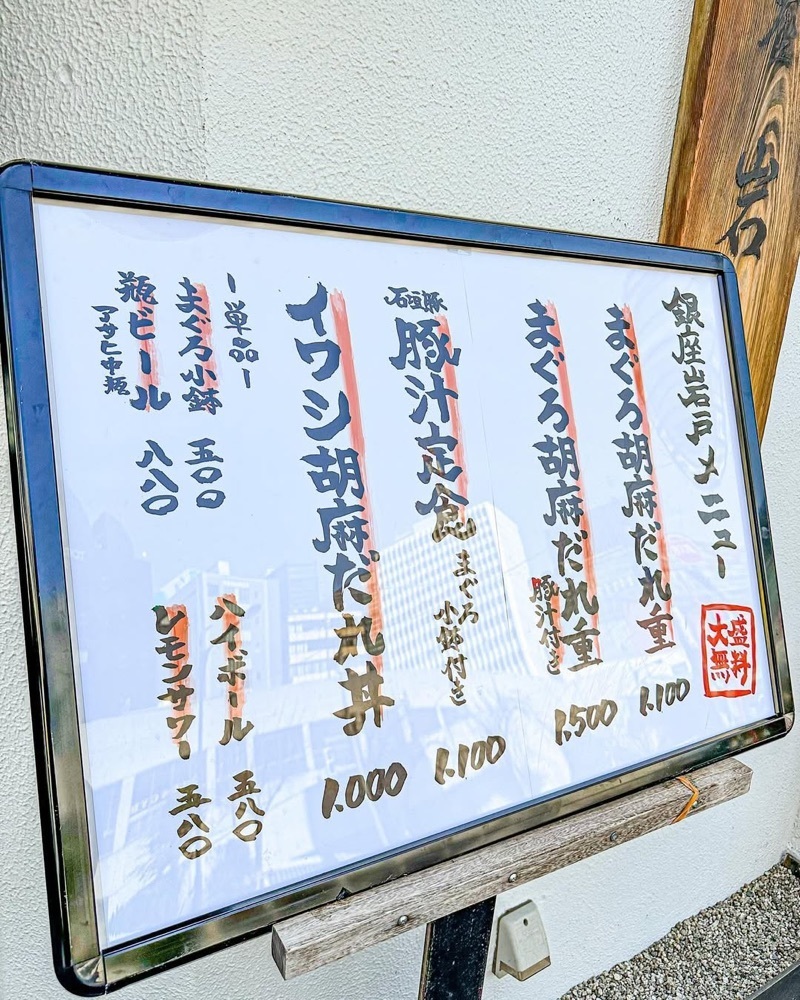 岩
銀座岩戸メニュー
大盛
無料
まぐろ胡麻だれ重
1.100
まぐろ胡麻だれ重
豚汁付き
1.500
石垣豚
豚汁定食
まぐろ小鉢付き
1.100
イワシ胡麻だれ丼
1.000
ー単品ー
まぐろ小鉢 五〇〇
瓶ビール 八八〇
アサヒ中瓶
ハイボール 五八〇
レモンサワー 五八〇